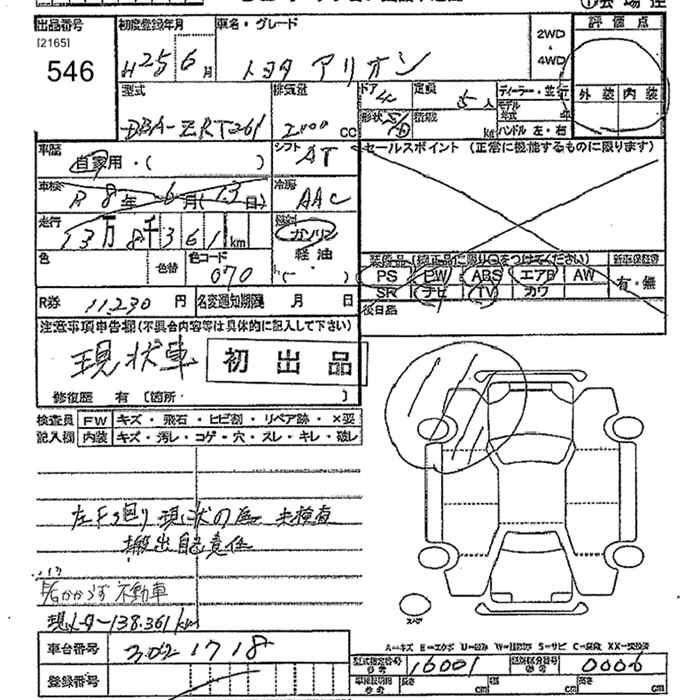 出品番号 初度登録年月 車名・グレード 評価点
[2165]
546
H25年6月 トヨタ アリオン
2WD
・
4WD
外装 内装
型式 排気量 ドア 定員 ディーラー・並行
モデル
年式 年
DBA-ZRT261 2000 CC 4 5人
形状 積載 kg ハンドル 左・右
車歴 自家用・( ) シフト AT セールスポイント (正常に機能するものに限ります)
車検 R8年6月(13日) 冷房 AAC
走行 13万8千361km 燃料 ガソリン
軽油
( )
色 色替 色コード 070
装備品(純正品に限り○をつけてください) 新車保証書
PS PW ABS エアB AW 有・無
SR ナビ TV カワ
R券 11,230円 名変通知期限 月 日 後日品
注意事項申告欄(不具合内容等は具体的に記入して下さい)
現状車 初出品
修復歴 有 〔箇所・ 〕
検査員 FW キズ・飛石・ヒビ割・リペア跡・×要
記入欄 内装 キズ・汚レ・コゲ・穴・スレ・キレ・破レ
現状の為 未検査
搬出自己責任
不動車
現メーター138,361km
スペア
A=キズ E=エクボ U=凹み W=補修跡 S=サビ C=腐食 XX=交換済
車台番号 3021718
登録番号
型式指定番号 16001 類別区分番号 0006
長さ cm 幅 cm 高さ cm